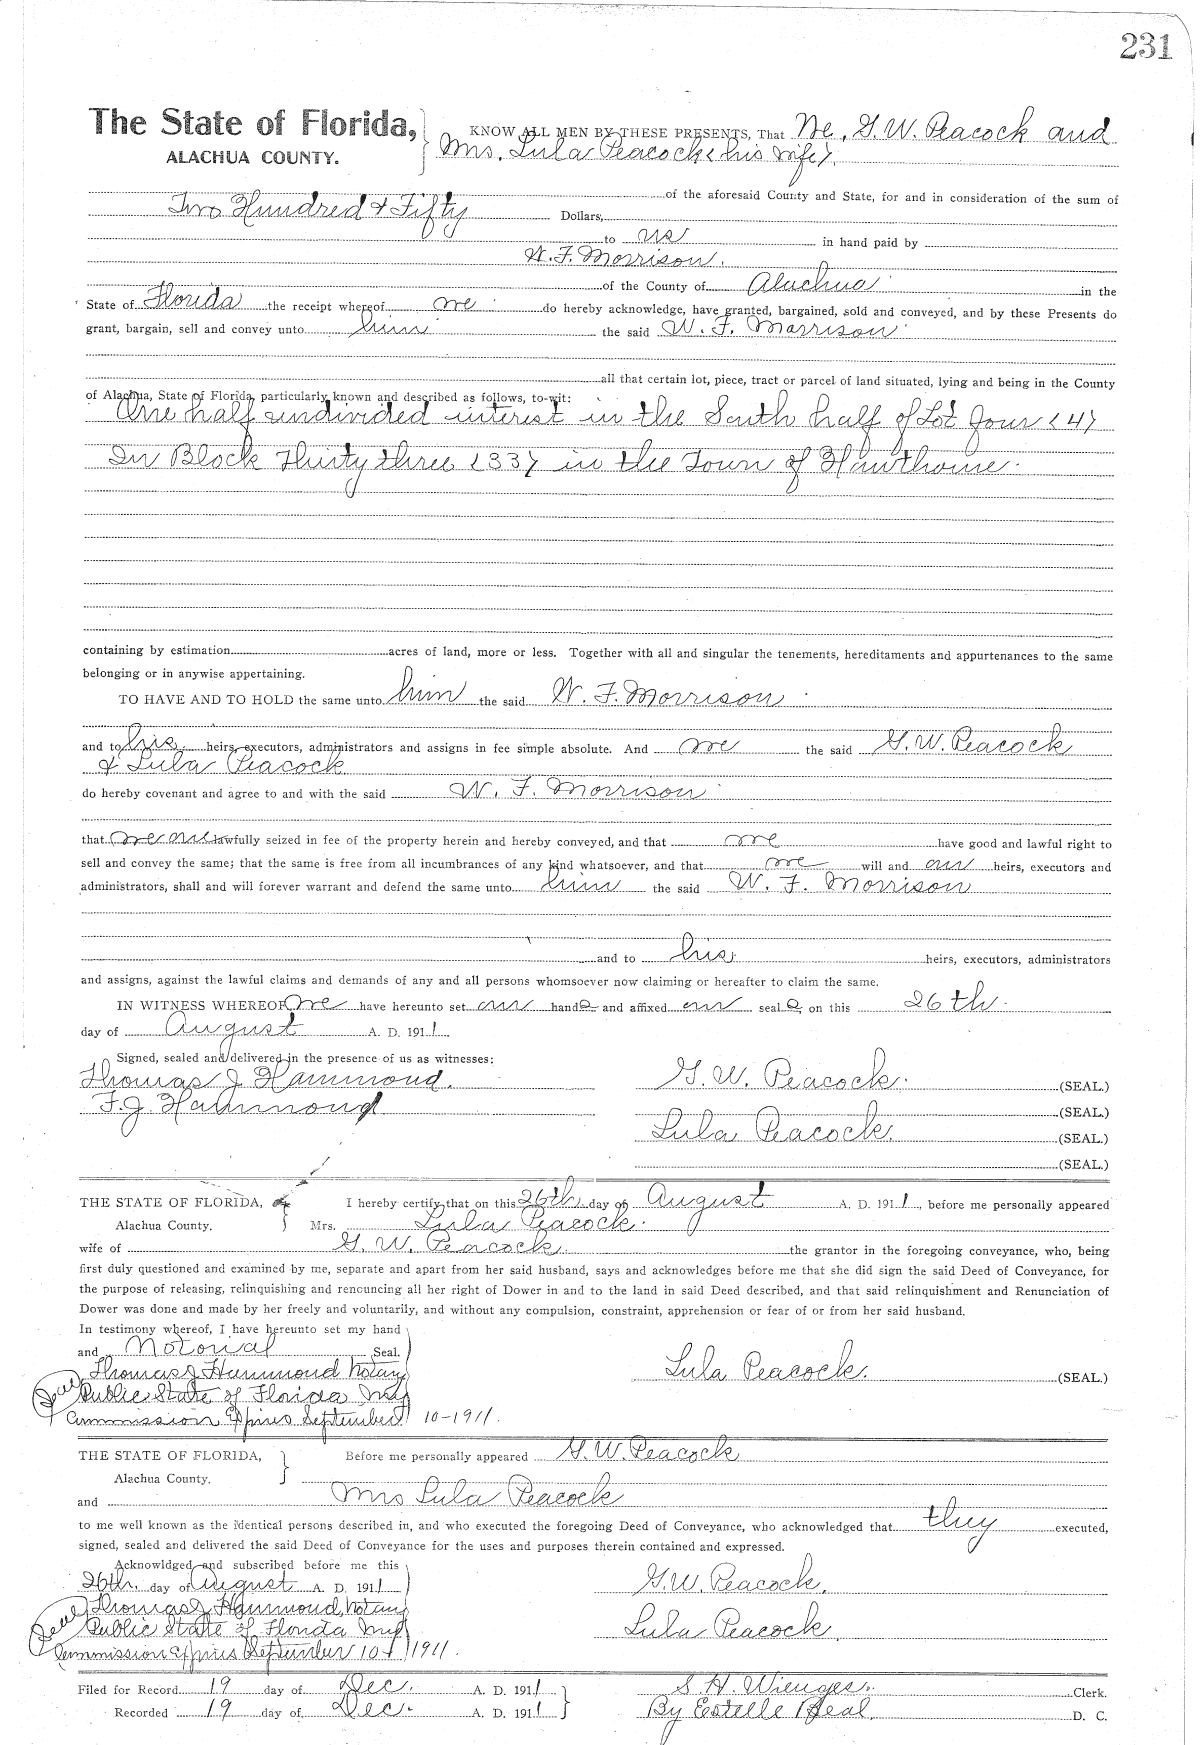 231
The State of Florida, KNOW ALL MEN BY THESE PRESENTS, That We, G. W. Peacock and
ALACHUA COUNTY. Mrs. Lula Peacock (his wife).
of the aforesaid County and State, for and in consideration of the sum of
Two Hundred & Fifty Dollars,
to us in hand paid by
W. F. Morrison.
of the County of Alachua in the
State of Florida the receipt whereof we do hereby acknowledge, have granted, bargained, sold and conveyed, and by these Presents do
grant, bargain, sell and convey unto him the said W. F. Morrison
all that certain lot, piece, tract or parcel of land situated, lying and being in the County
of Alachua, State of Florida, particularly known and described as follows, to-wit:
One half undivided interest in the South half of Lot four (4)
In Block Thirty three (33) in the Town of Hawthorne.
containing by estimation acres of land, more or less. Together with all and singular the tenements, hereditaments and appurtenances to the same
belonging or in anywise appertaining.
TO HAVE AND TO HOLD the same unto him the said W. F. Morrison
and to his heirs, executors, administrators and assigns in fee simple absolute. And we the said G. W. Peacock
& Lula Peacock
do hereby covenant and agree to and with the said W. F. Morrison
that we are lawfully seized in fee of the property herein and hereby conveyed, and that we have good and lawful right to
sell and convey the same; that the same is free from all incumbrances of any kind whatsoever, and that we will and our heirs, executors and
administrators, shall and will forever warrant and defend the same unto him the said W. F. Morrison
and to his heirs, executors, administrators
and assigns, against the lawful claims and demands of any and all persons whomsoever now claiming or hereafter to claim the same.
IN WITNESS WHEREOF, we have hereunto set our hands and affixed our seals on this 26th
day of August A. D. 1911.
Signed, sealed and delivered in the presence of us as witnesses:
Thomas J Hammond. G. W. Peacock. (SEAL.)
F. J. Hammond (SEAL.)
Lula Peacock. (SEAL.)
(SEAL.)
THE STATE OF FLORIDA, I hereby certify that on this 26th day of August A. D. 1911, before me personally appeared
Alachua County. Mrs. Lula Peacock.
wife of G. W. Peacock. the grantor in the foregoing conveyance, who, being
first duly questioned and examined by me, separate and apart from her said husband, says and acknowledges before me that she did sign the said Deed of Conveyance, for
the purpose of releasing, relinquishing and renouncing all her right of Dower in and to the land in said Deed described, and that said relinquishment and Renunciation of
Dower was done and made by her freely and voluntarily, and without any compulsion, constraint, apprehension or fear of or from her said husband.
In testimony whereof, I have hereunto set my hand
and Notorial Seal.
Thomas J Hammond Notary Lula Peacock. (SEAL.)
Seal Public State of Florida My
Commission Expires September 10-1911.
THE STATE OF FLORIDA, Before me personally appeared G. W. Peacock
Alachua County.
and Mrs Lula Peacock
to me well known as the identical persons described in, and who executed the foregoing Deed of Conveyance, who acknowledged that they executed,
signed, sealed and delivered the said Deed of Conveyance for the uses and purposes therein contained and expressed.
Acknowldged and subscribed before me this
26th. day of August A. D. 1911 G. W. Peacock.
Thomas J Hammond, Notary
Seal Public State of Florida My Lula Peacock.
Commission Expires September 10th 1911.
Filed for Record 19 day of Dec. A. D. 1911 S. H. Wienges. Clerk.
Recorded 19 day of Dec. A. D. 1911 By Estelle Beal. D. C.